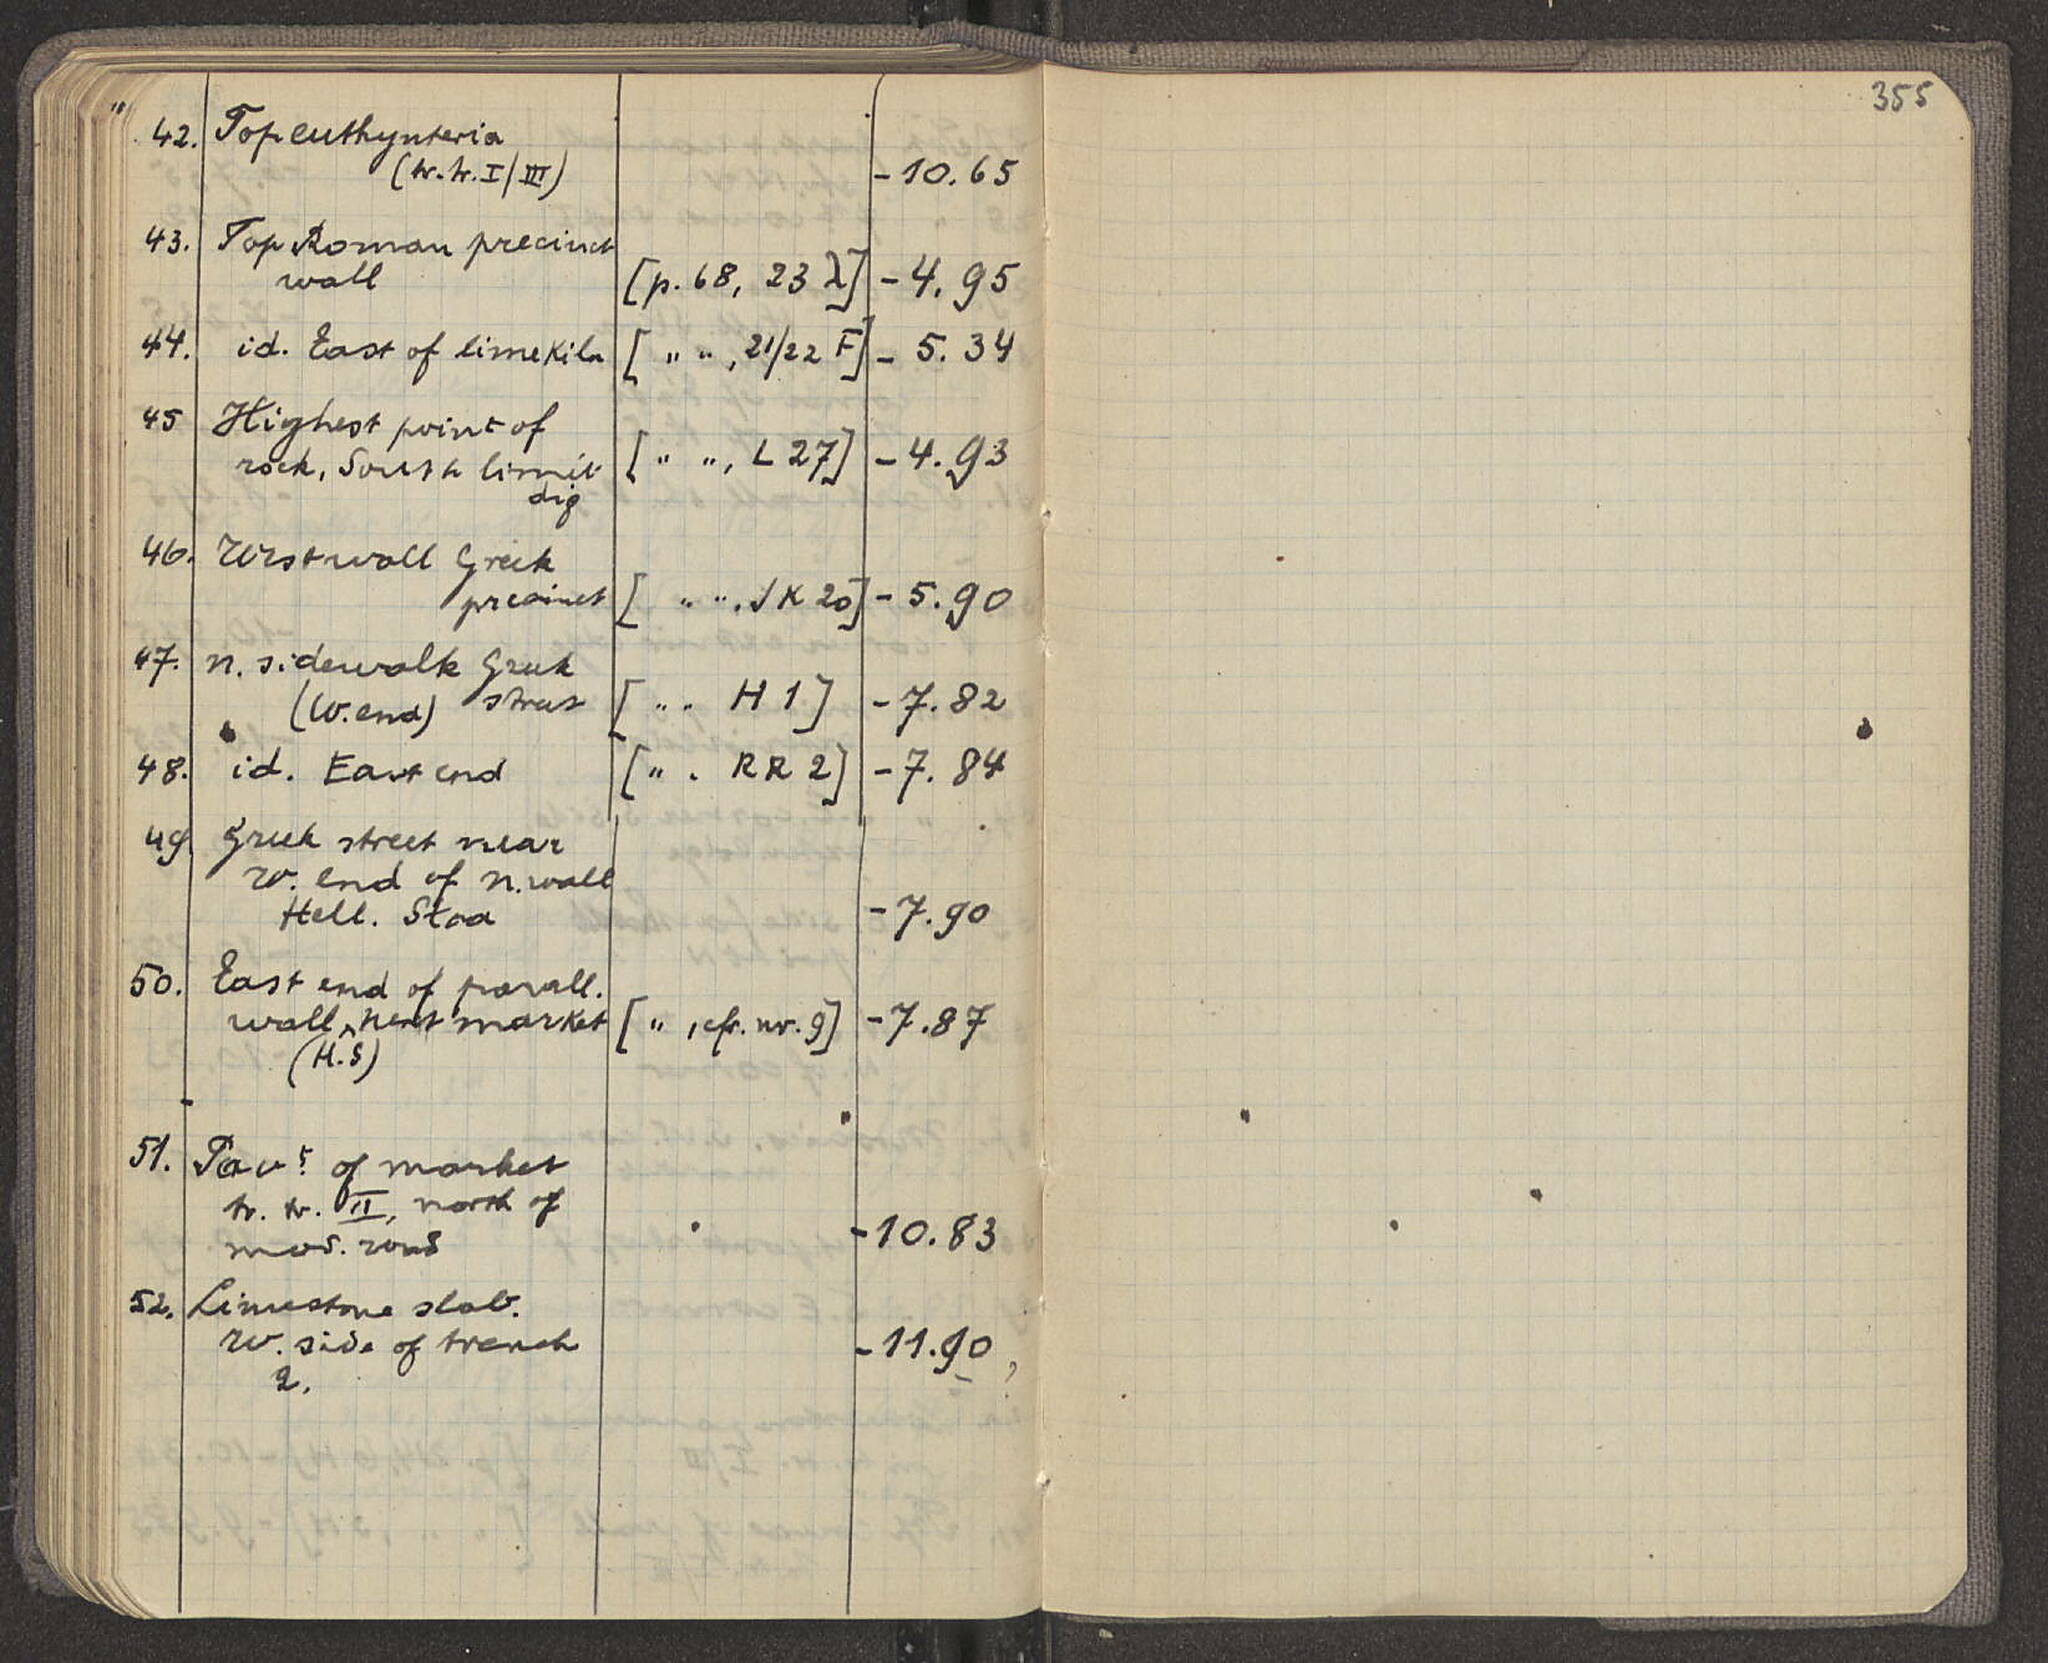 42. Top euthynteria
(tr. tr. I/III) - 10.65
43. Top Roman precinct
wall [p. 68, 23 λ] - 4.95
44. id. East of limekiln [ " " , 21/22 F] - 5.34
45 Highest point of
rock, South limit [ " " , L 27] - 4.93
dig
46. West wall Greek
precinct [ " " , JK 20] - 5.90
47. n. sidewalk Greek
(W. end) street [ " " H 1] - 7.82
48. id. East end [ " " RR 2] - 7.84
49 Greek street near
W. end of n. wall
Hell. Stoa - 7.90
50. East end of parall.
wall, next market [ " , cfr. nr. 9] - 7.87
(H.S)
51. Pavt. of market
tr. tr. II, north of - 10.83
mod. road
52. Limestone slab.
W. side of trench - 11.90
2.
355